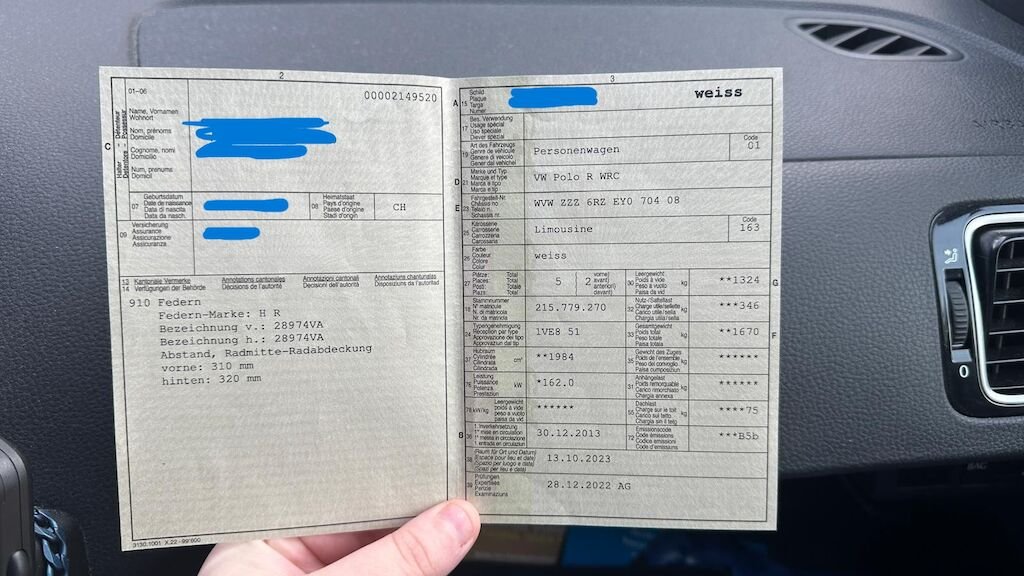 2
01-06
00002149520
Name, Vornamen
Wohnort
Nom, prénoms
Domicile
Cognome, nomi
Domicilio
Num, prenums
Domicil
C
Halter
Détenteur
Detentore
Possessur
07
Geburtsdatum
Date de naissance
Data di nascita
Data da nasch.
08
Heimatstaat
Pays d'origine
Paese d'origine
Stadi d'origin
CH
09
Versicherung
Assurance
Assicurazione
Assicuranza
13 Kantonale Vermerke Annotations cantonales Annotazioni cantonali Annotaziuns chantunalas
14 Verfügungen der Behörde Décisions de l'autorité Decisioni dell'autorità Disposiziuns da l'autoritad
910 Federn
Federn-Marke: H R
Bezeichnung v.: 28974VA
Bezeichnung h.: 28974VA
Abstand, Radmitte-Radabdeckung
vorne: 310 mm
hinten: 320 mm
3
A 15
Schild
Plaque
Targa
Numer
weiss
17
Bes. Verwendung
Usage spécial
Uso speciale
Diever spezial
19
Art des Fahrzeugs
Genre de véhicule
Genere di veicolo
Gener dal vehichel
Personenwagen
Code
01
D 21
Marke und Typ
Marque et type
Marca e tipo
Marca e tip
VW Polo R WRC
E 23
Fahrgestell-Nr.
Châssis no
Telaio n.
Schassis nr.
WVW ZZZ 6RZ EY0 704 08
25
Karosserie
Carrosserie
Carrozzeria
Carossaria
Limousine
Code
163
26
Farbe
Couleur
Colore
Colur
weiss
27
Plätze: Total
Places: Total
Posti: Totale
Plazs: Total
5
2
vorne)
avant)
anteriori)
davant)
30
Leergewicht
Poids à vide
Peso a vuoto
Paisa da vid
kg
**1324
G
18
Stammnummer
N° matricule
N. di matricola
Nr. da matricla
215.779.270
32
Nutz-/Sattellast
Charge utile/sellette
Carico utile/sella
Chargia utila/sella
kg
**346
24
Typengenehmigung
Réception par type
Approvazione del tipo
Approvaziun dal tip
1VE8 51
33
Gesamtgewicht
Poids total
Peso totale
Paisa totala
kg
**1670
F
37
Hubraum
Cylindrée
Cilindrata
Cilindrada
cm³
**1984
35
Gewicht des Zuges
Poids de l'ensemble
Peso del convoglio
Paisa cumposiziun
kg
******
76
Leistung
Puissance
Potenza
Prestaziun
kW
*162.0
31
Anhängelast
Poids remorquable
Carico rimorchiato
Chargia annexa
kg
******
78 kW/kg
Leergewicht
poids à vide
peso a vuoto
paisa da vid
******
55
Dachlast
Charge sur le toit
Carico sul tetto
Chargia sin il tetg
kg
****75
B 36
1. Inverkehrsetzung
1re mise en circulation
1a messa in circolazione
1. entrada en circulaziun
30.12.2013
72
Emissionscode
Code émissions
Codice emissioni
Code d'emissiuns
***B5b
38
(Raum für Ort und Datum)
(Espace pour lieu et date)
(Spazio per luogo e data)
(Spazi per lieu e data)
13.10.2023
39
Prüfungen
Expertises
Perizie
Examinaziuns
28.12.2022 AG
3130.1001 X.22 - 99'600
BAG